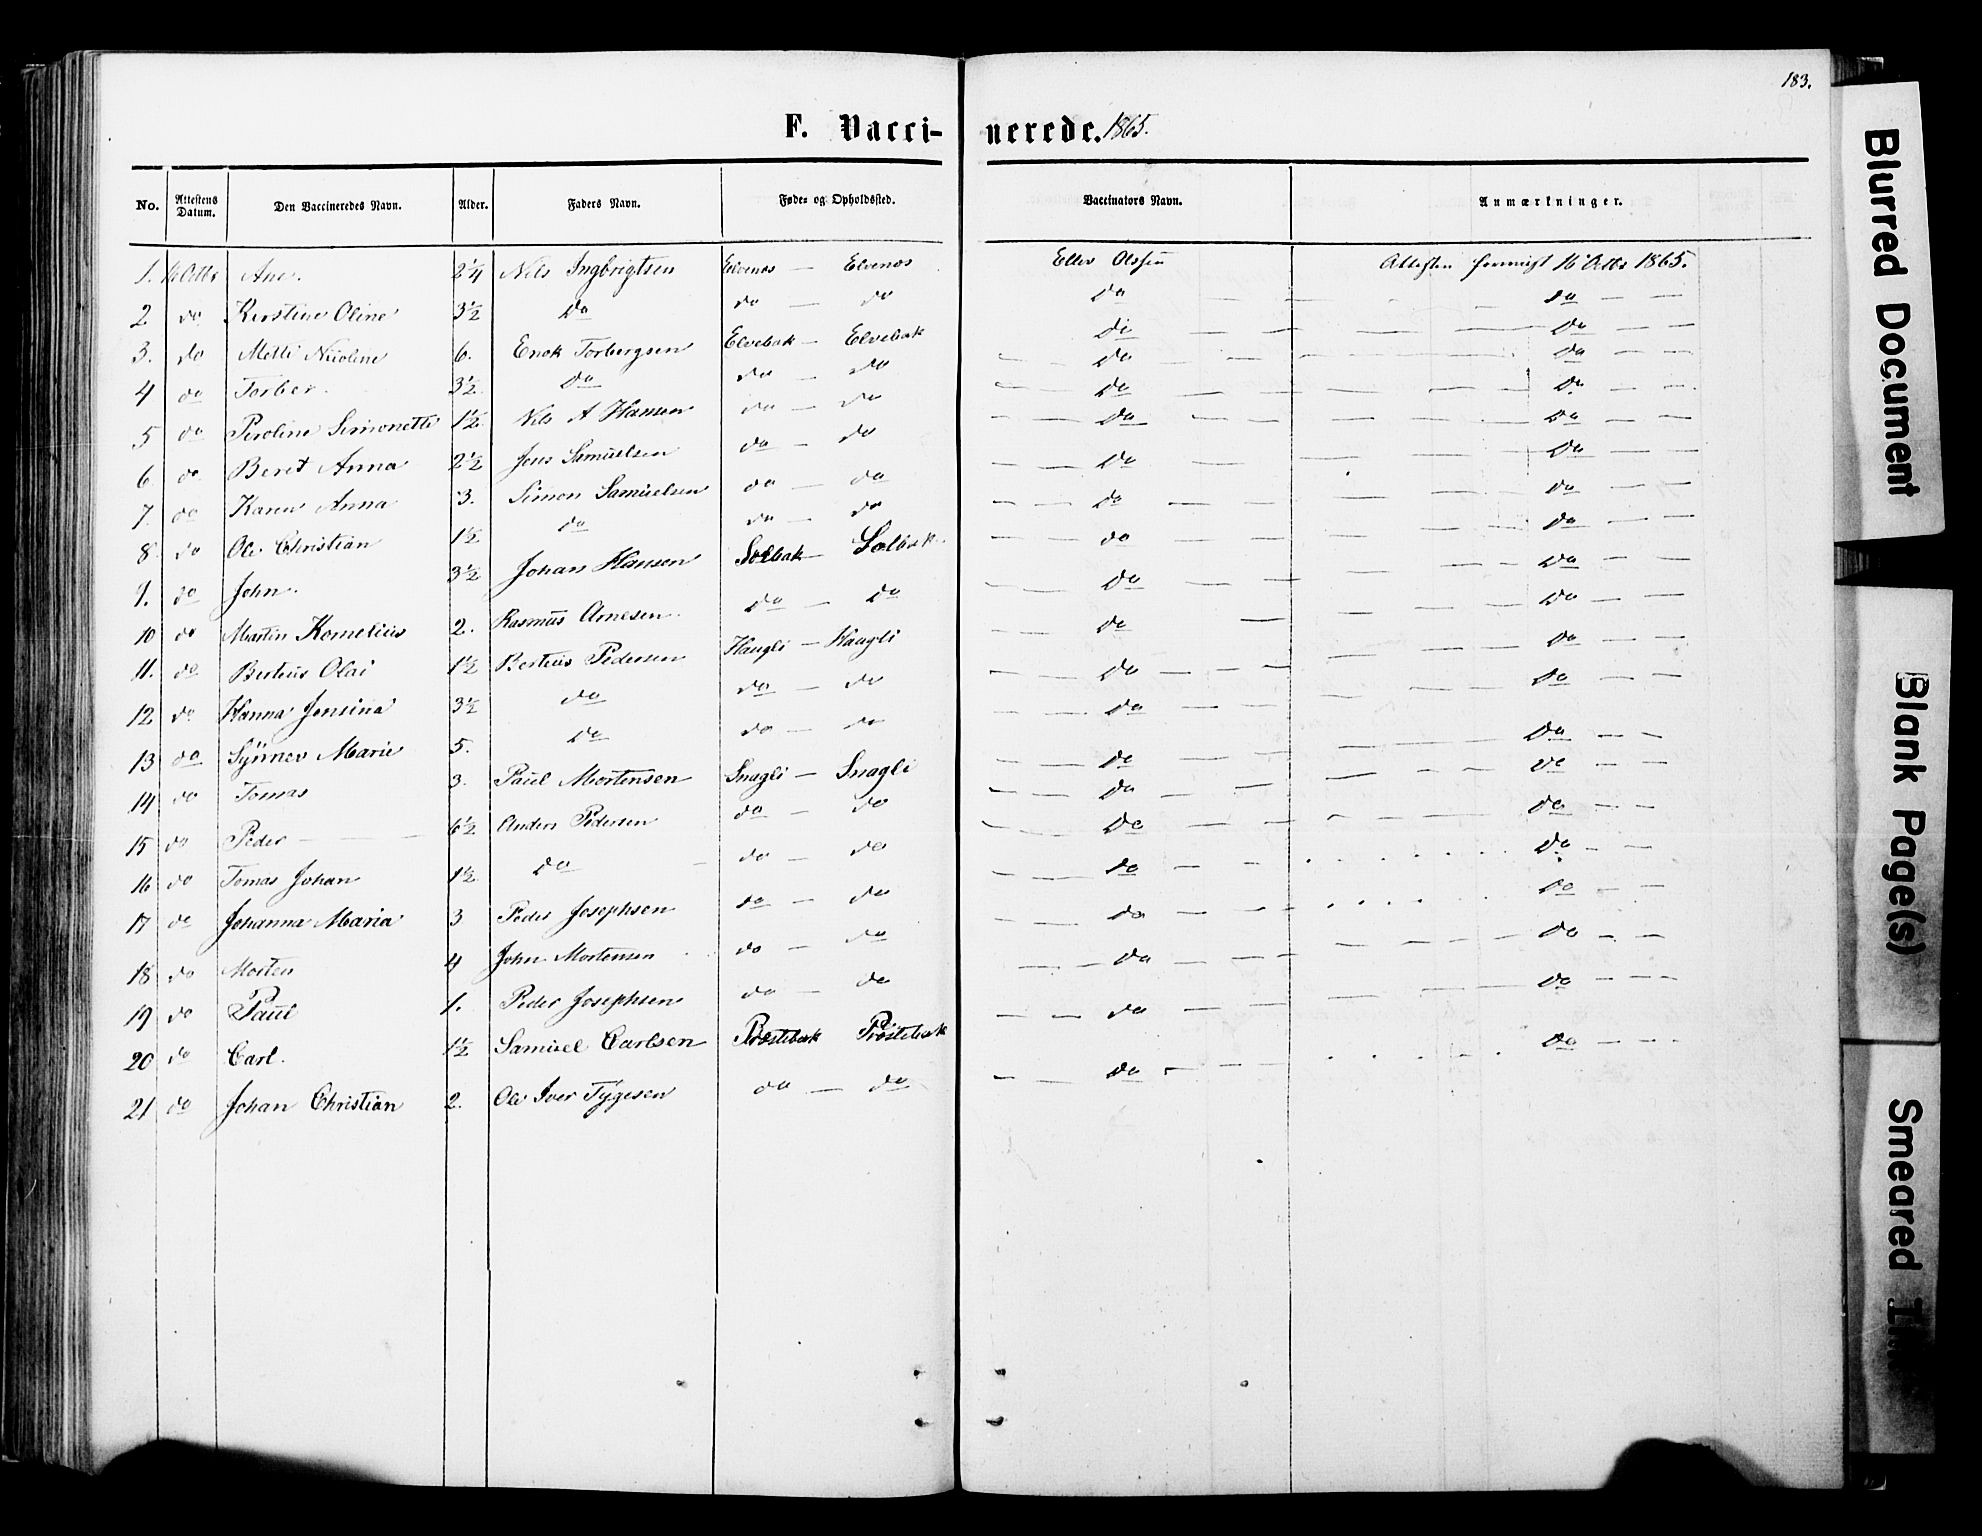 183.
F. Vacci- nerede. 1865.
No. Attestens Datum. Den Vaccineredes Navn. Alder. Faders Navn. Føde- og Opholdssted. Vaccinators Navn. Anmærkninger.
1. 16 Octbr Ane. 2 1/4 Nils Ingbrigtsen Elvenes — Elvenes Ellev Olssen Attesten 16 Octbr 1865.
2 do Kirstine Oline 3 1/2 Do do — do Do — — — — — Do — —
3. do Mette Nicoline 6. Enok Torbergsen Elvebak — Elvebak Do — — — — — Do — —
4 do Torber. 3 1/2 Do do — do Do — — — — Do — —
5 do Peroline Simonette 1 1/2 Nils A Hansen do — do Do — — — — — Do — —
6 do Beret Anna 2 1/2 Jens Samuelsen do — do Do — — — — — Do — —
7. do Karen Anna 3. Simon Samuelsen do — do Do — — — — — Do — —
8. do Ole Christian 1 1/2 do do — do Do — — — — — Do — —
9. do John. 3 1/2 Johan Hansen Solbak — Solbak Do — — — — — Do — —
10 do Martin Kornelius 2. Rasmus Arnesen. Do — Do Do — — — — — Do — —
11. do Berteus Olai 1 1/2 Berteus Pedersen Haugli — Haugli Do — — — — Do — —
12 do Hanna Jensina 3 1/2 do do — do Do — — — — — Do — —
13 do Synnev Marie 5. Do do — do Do — — — — — Do — —
14 do Tomas 3. Paul Mortensen Snagli — Snagli Do — — — — — Do — —
15 do Peder — 6 1/2 Anders Pedersen do — do Do — — — — — Do — —
16 do Tomas Johan 1 1/2 Do do — do Do — — — — — Do — —
17 do Johanna Maria 3 Peder Josephsen do — do Do — — — Do — —
18 do Morten 4 John Mortensen do — do Do — — — Do — —
19 do Paul 1. Peder Josephsen do — do Do — — — — — Do — —
20 do Carl. 1 1/2 Samuel Carlsen Prestebak Prestebak Do — — — — — Do — —
21 do Johan Christian 2. Ole Iver Tygesen do — do Do — — — Do — —
Blurred Document
Blank Page(s)
Smeared